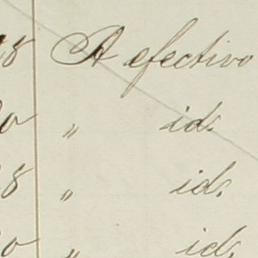 8 A efectivo
0 " id.
8 " id.
0 " id.